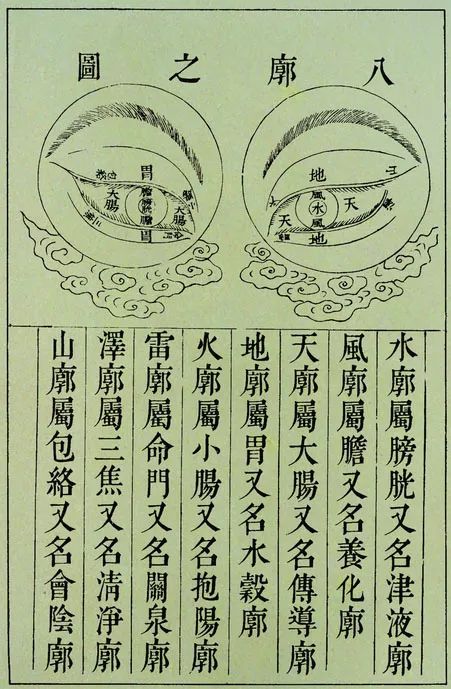 八廓之圖
地
天
風
水
風
天
地
胃
大腸
膽
膀胱
膽
大腸
胃
水廓屬膀胱又名津液廓
風廓屬膽又名養化廓
天廓屬大腸又名傳導廓
地廓屬胃又名水穀廓
火廓屬小腸又名抱陽廓
雷廓屬命門又名關泉廓
澤廓屬三焦又名清淨廓
山廓屬包絡又名會陰廓